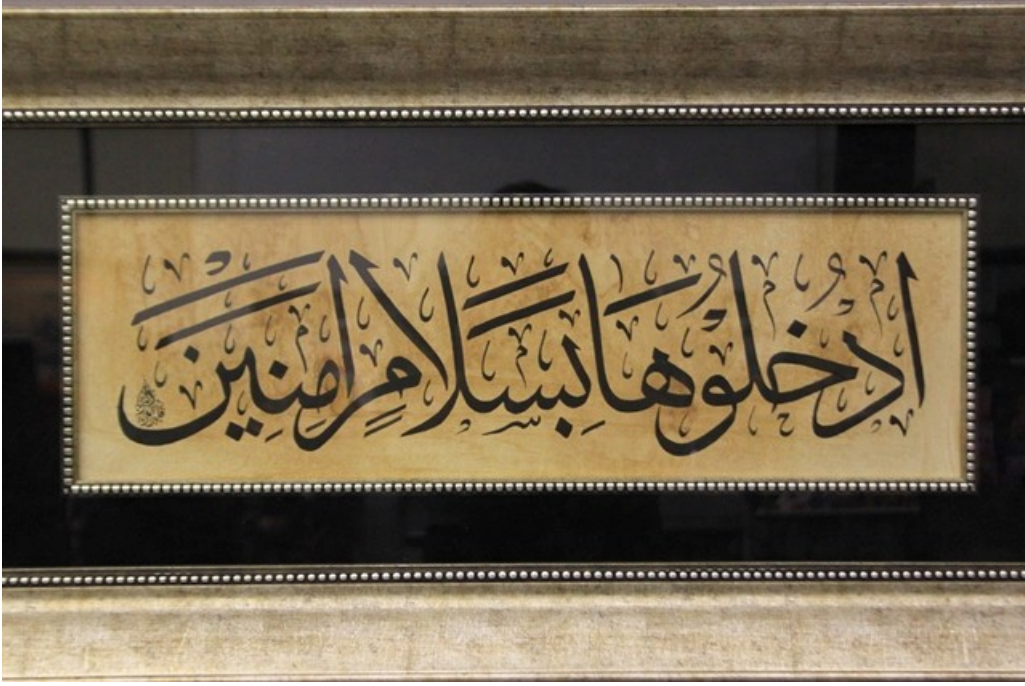 ادْخُلُوْهَا بِسَلَامٍ اٰمِنِيْنَ